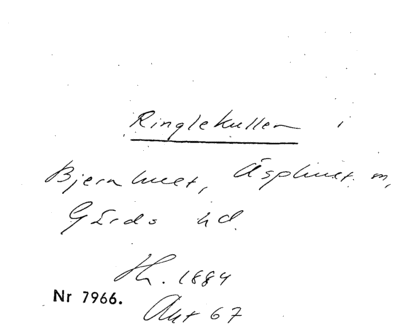 Ringlekullen i
Bjernhuset, Äsphust. m,
Gärds hd.
Hz. 1884
Nr 7966.
Akt 67